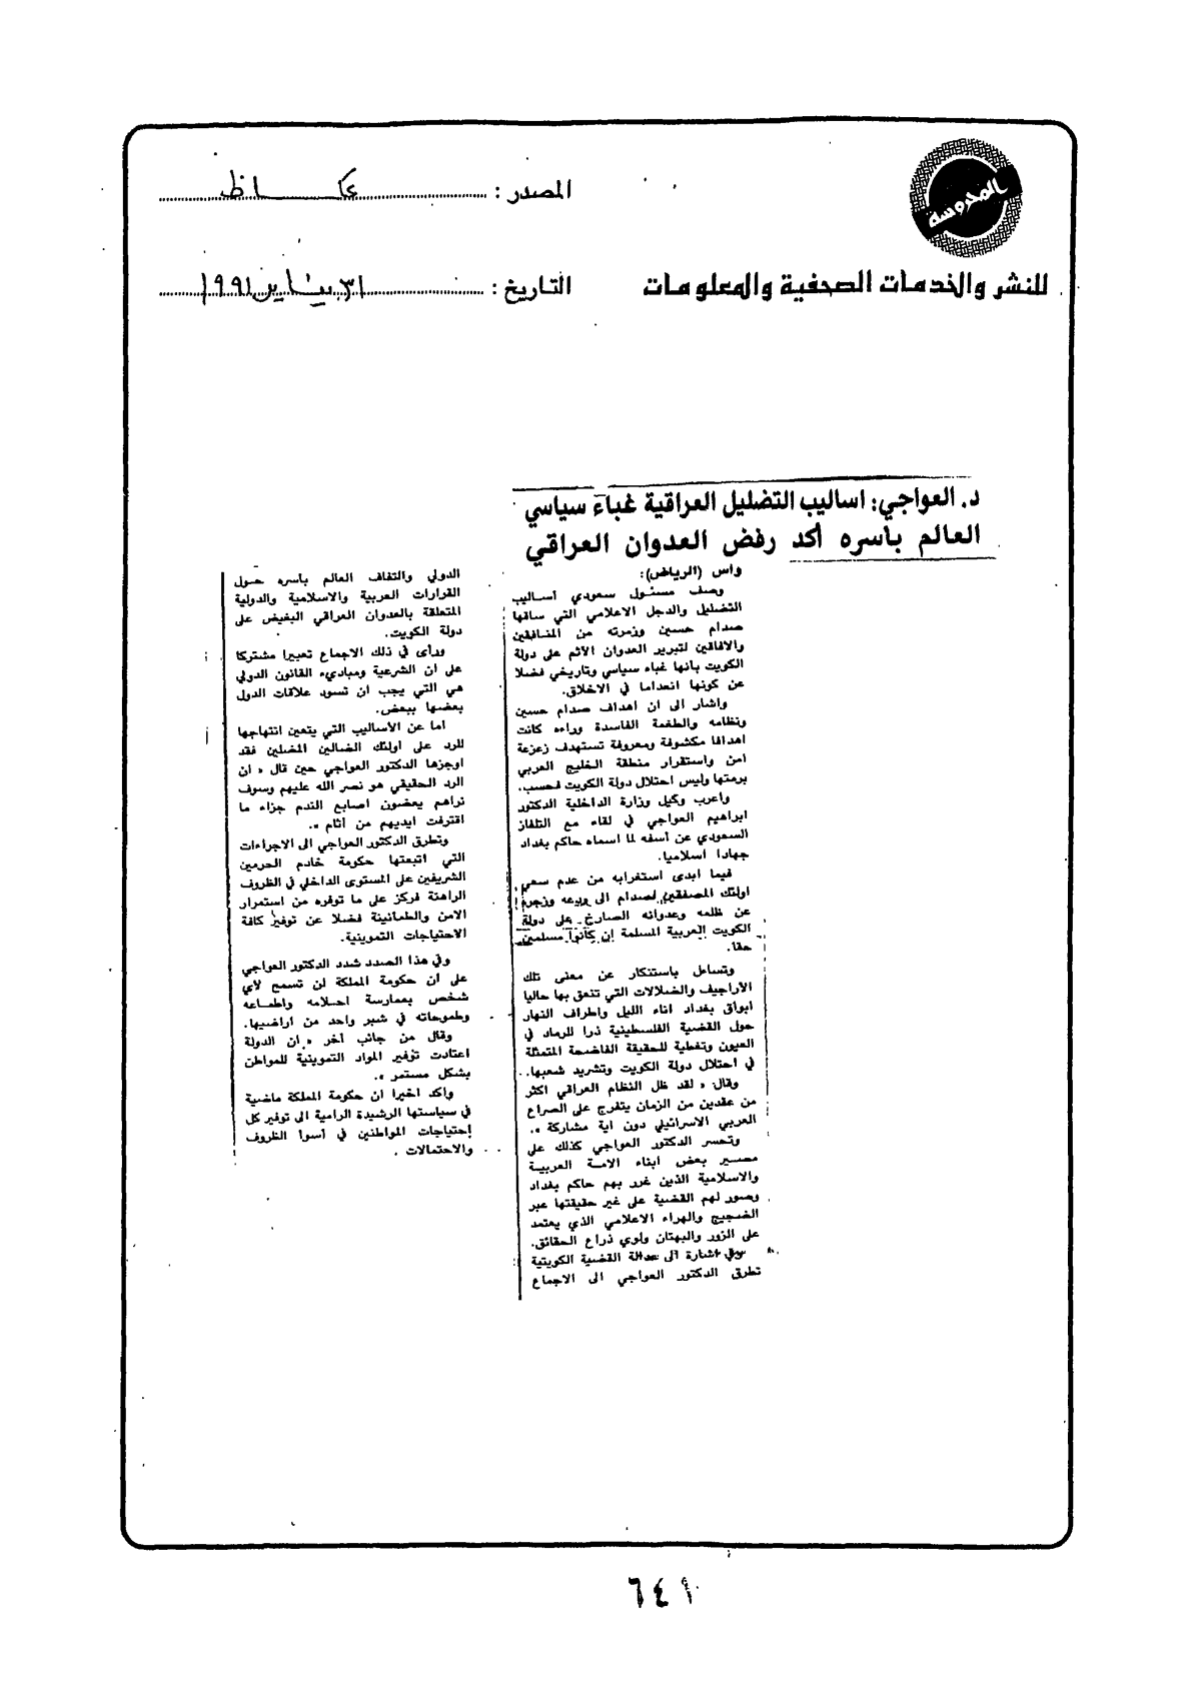 المحروسة
للنشر والخدمات الصحفية والمعلومات
المصدر : عكاظ
التاريخ : ٣١ يناير ١٩٩١
د. العواجي: اساليب التضليل العراقية غباء سياسي
العالم باسره أكد رفض العدوان العراقي
واس (الرياض):
وصف مسئول سعودي أساليب
التضليل والدجل الاعلامي التي ساقها
صدام حسين وزمرته من المنافقين
والافاقين لتبرير العدوان الآثم على دولة
الكويت بأنها غباء سياسي وتاريخي فضلا
عن كونها انعداما في الاخلاق.
واشار الى ان اهداف صدام حسين
ونظامه والطغمة الفاسدة وراءه كانت
اهدافا مكشوفة ومعروفة تستهدف زعزعة
امن واستقرار منطقة الخليج العربي
برمتها وليس احتلال دولة الكويت فحسب.
واعرب وكيل وزارة الداخلية الدكتور
ابراهيم العواجي في لقاء مع التلفاز
السعودي عن أسفه لما اسماه حاكم بغداد
جهادا اسلاميا.
فيما ابدى استغرابه من عدم سعي
اولئك المصفقين لصدام الى ردعه وزجره
عن ظلمه وعدوانه الصارخ على دولة
الكويت العربية المسلمة ان كانوا مسلمين
حقا.
وتساءل باستنكار عن معنى تلك
الأراجيف والضلالات التي تنعق بها حاليا
ابواق بغداد اناء الليل واطراف النهار
حول القضية الفلسطينية ذرا للرماد في
العيون وتغطية للحقيقة الفاضحة المتمثلة
في احتلال دولة الكويت وتشريد شعبها.
وقال « لقد ظل النظام العراقي اكثر
من عقدين من الزمان يتفرج على الصراع
العربي الاسرائيلي دون اية مشاركة ».
وتحسر الدكتور العواجي كذلك على
مصير بعض ابناء الامة العربية
والاسلامية الذين غرر بهم حاكم بغداد
وصور لهم القضية على غير حقيقتها عبر
الضجيج والهراء الاعلامي الذي يعتمد
على الزور والبهتان ولوي ذراع الحقائق.
وفي اشارة الى عدالة القضية الكويتية
تطرق الدكتور العواجي الى الاجماع
الدولي والتفاف العالم باسره حول
القرارات العربية والاسلامية والدولية
المتعلقة بالعدوان العراقي البغيض على
دولة الكويت.
ورأى في ذلك الاجماع تعبيرا مشتركا
على ان الشرعية ومبادىء القانون الدولي
هي التي يجب ان تسود علاقات الدول
بعضها ببعض.
اما عن الأساليب التي يتعين انتهاجها
للرد على اولئك الضالين المضلين فقد
اوجزها الدكتور العواجي حين قال « ان
الرد الحقيقي هو نصر الله عليهم وسوف
نراهم يعضون اصابع الندم جزاء ما
اقترفت ايديهم من آثام ».
وتطرق الدكتور العواجي الى الاجراءات
التي اتبعتها حكومة خادم الحرمين
الشريفين على المستوى الداخلي في الظروف
الراهنة فركز على ما توفره من استمرار
الامن والطمانينة فضلا عن توفير كافة
الاحتياجات التموينية.
وفي هذا الصدد شدد الدكتور العواجي
على ان حكومة المملكة لن تسمح لأي
شخص بممارسة احلامه واطماعه
وطموحاته في شبر واحد من اراضيها.
وقال من جانب آخر « ان الدولة
اعتادت توفير المواد التموينية للمواطن
بشكل مستمر ».
واكد اخيرا ان حكومة المملكة ماضية
في سياستها الرشيدة الرامية الى توفير كل
إحتياجات المواطنين في أسوأ الظروف
والاحتمالات .
٦٤١